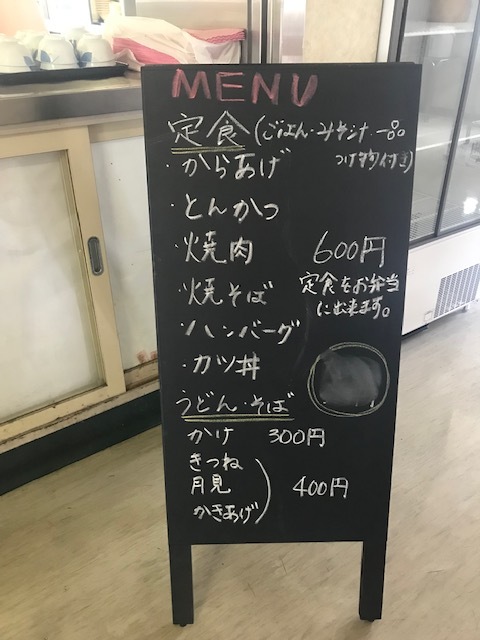 MENU
定食(ごはん・みそ汁・一品
つけ物付き)
・からあげ
・とんかつ
・焼肉 600円
・焼そば 定食をお弁当
に出来ます。
・ハンバーグ
・カツ丼
うどん・そば
かけ 300円
きつね
月見 400円
かきあげ